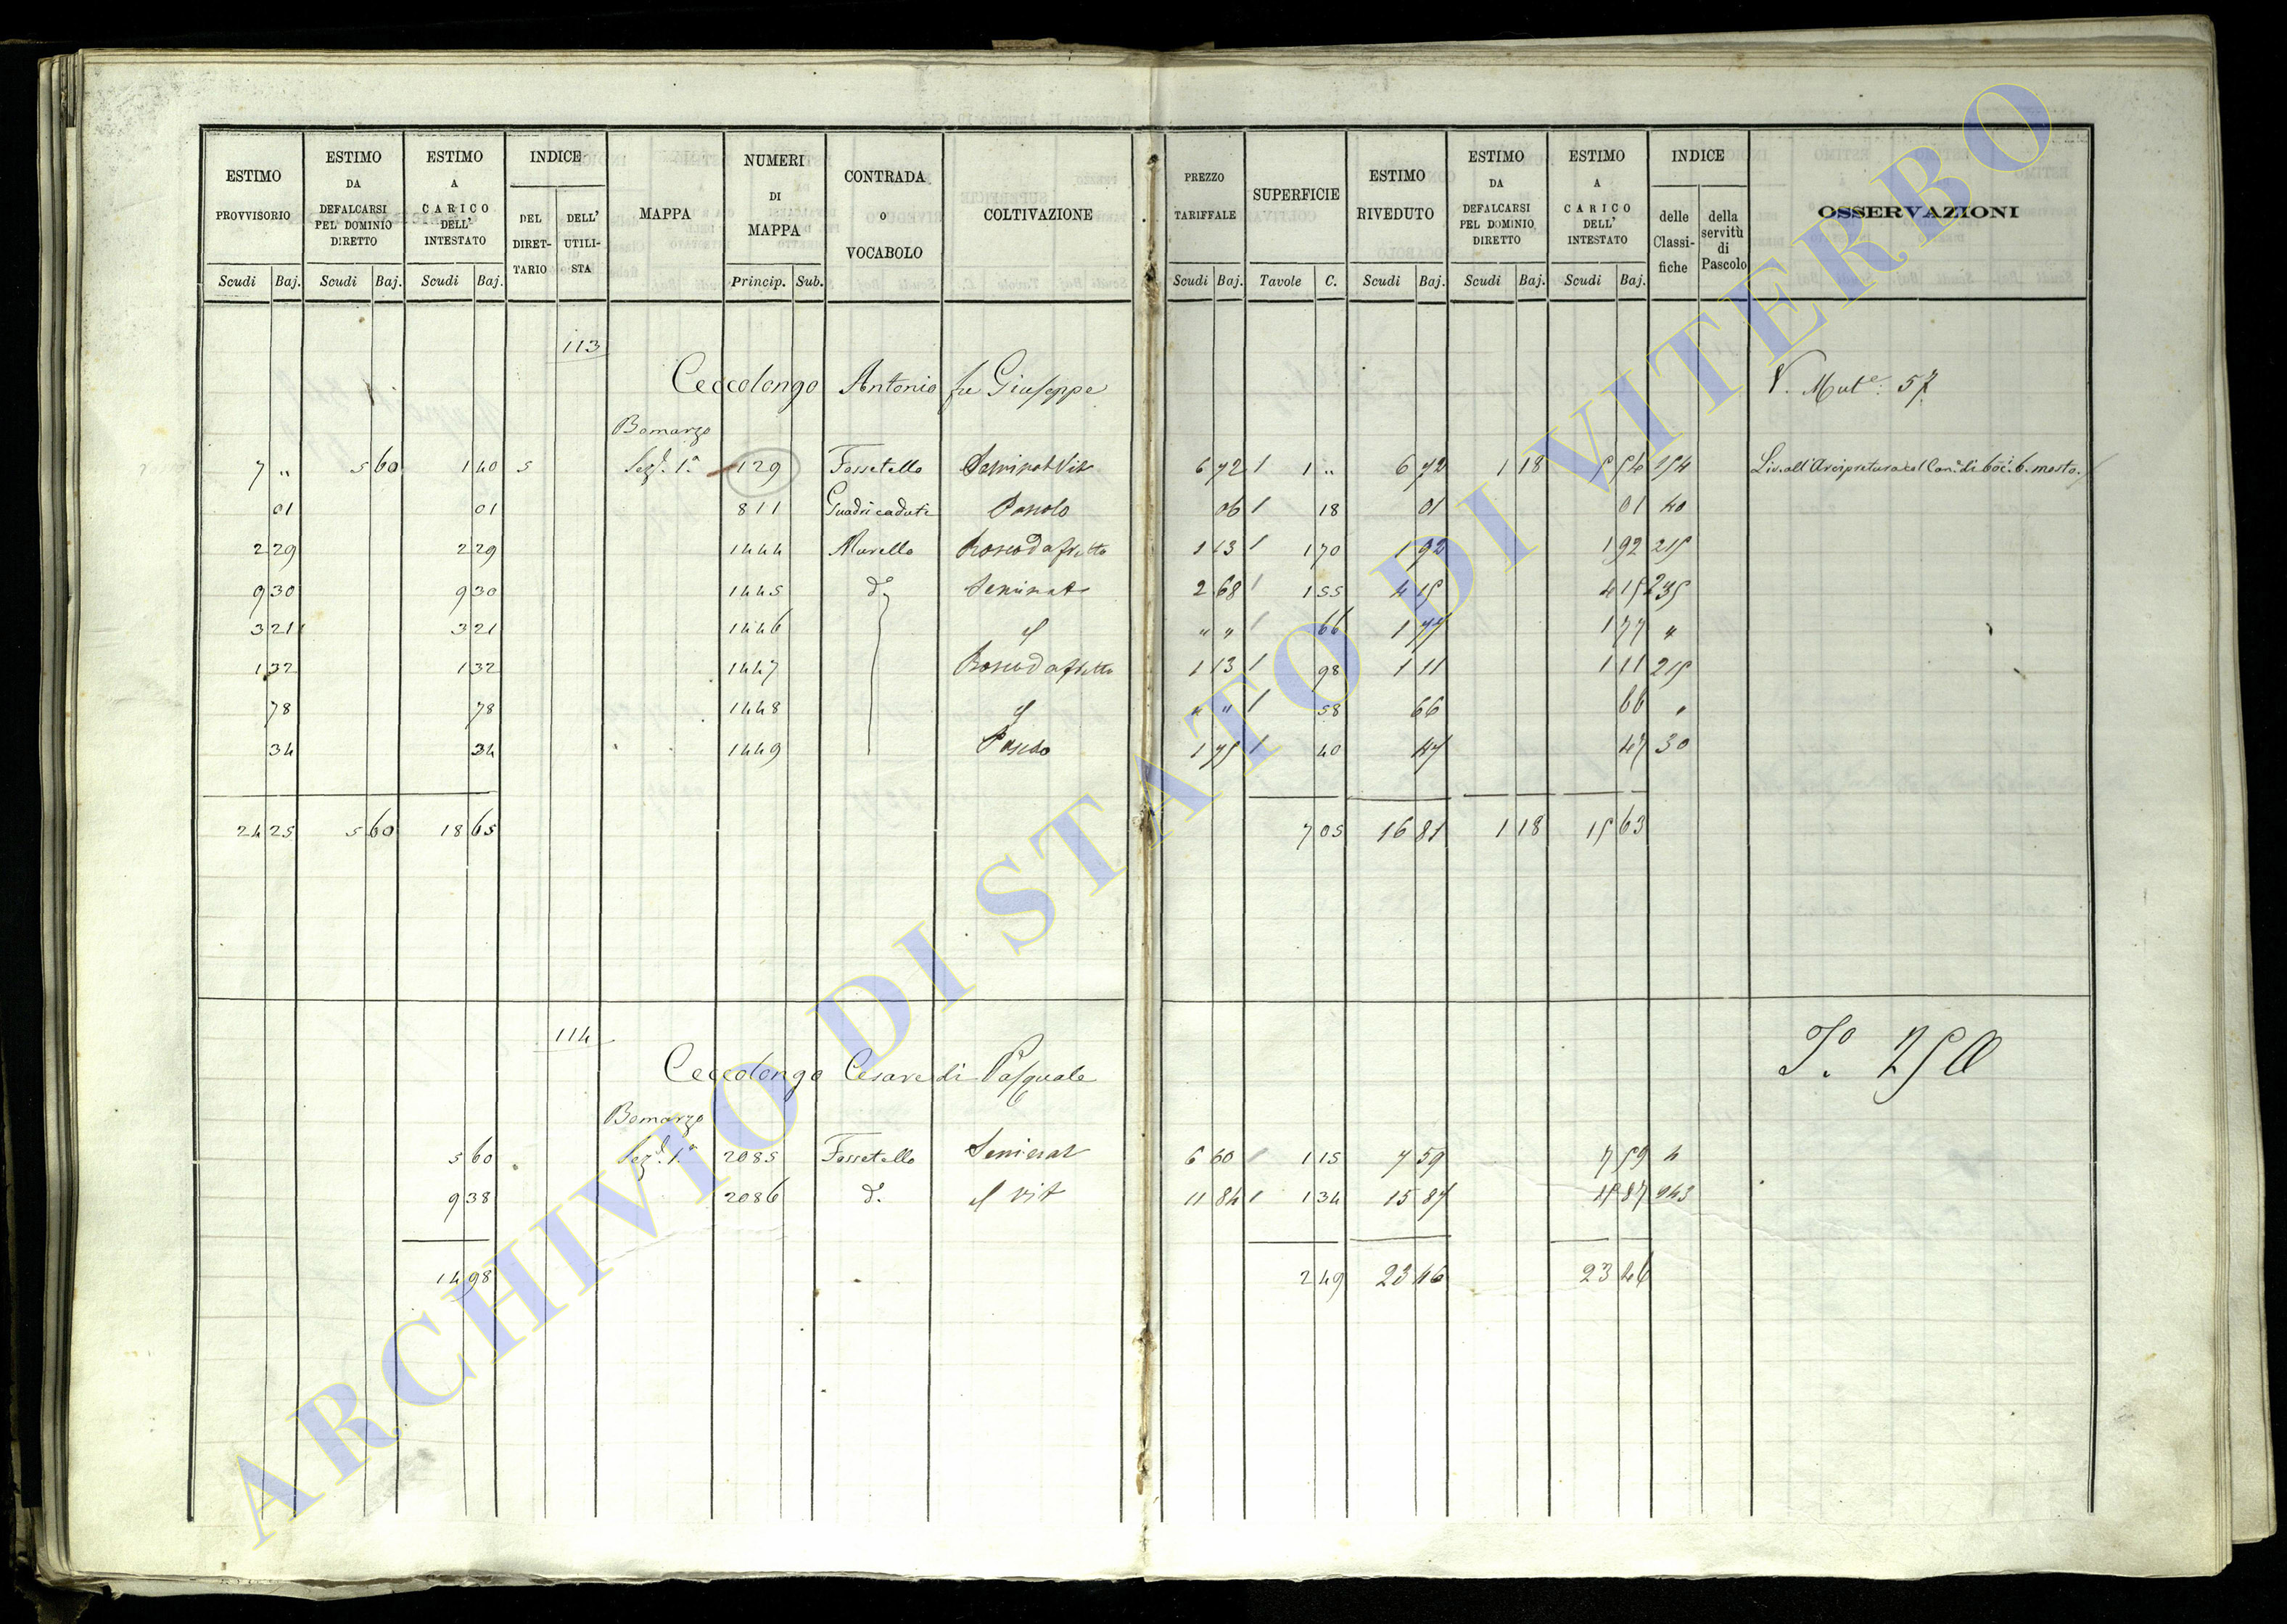 ESTIMO PROVVISORIO Scudi Baj.
ESTIMO DA DEFALCARSI PEL DOMINIO DIRETTO Scudi Baj.
ESTIMO A CARICO DELL' INTESTATO Scudi Baj.
INDICE DEL DIRETTARIO DELL' UTILISTA
MAPPA
NUMERI DI MAPPA Princip. Sub.
CONTRADA o VOCABOLO
COLTIVAZIONE
PREZZO TARIFFALE Scudi Baj.
SUPERFICIE Tavole C.
ESTIMO RIVEDUTO Scudi Baj.
ESTIMO DA DEFALCARSI PEL DOMINIO DIRETTO Scudi Baj.
ESTIMO A CARICO DELL' INTESTATO Scudi Baj.
INDICE delle Classifiche della servitù di Pascolo
OSSERVAZIONI
113
Ceccolongo Antonio fu Giuseppe V. Mut.e 57
Bomarzo
7 " 5 60 1 40 5 Sez. 1.a 129 Fossetello Seminat Vit 6 72 1 1 " 6 72 1 18 5 54 254
01 01 811 Quadri caduti Pascolo 06 1 18 01 01 40
2 29 2 29 1444 Murello Bosco Da frutto 1 13 1 1 70 1 92 1 92 215
9 30 9 30 1445 d.o Seminat 2 68 1 1 55 4 15 4 15 235
3 21 3 21 1446 " " 1 66 1 77 1 77 "
1 32 1 32 1447 Bosco Da frutto 1 13 1 98 1 11 1 11 215
78 78 1448 " " 1 58 66 66 "
34 34 1449 Pascolo 1 75 1 40 47 47 30
24 25 5 60 18 65 7 05 16 81 1 18 15 63
114
Ceccolongo Cesare di Pasquale
Bomarzo
5 60 Sez. 1.a 2085 Fossetello Seminat 6 60 1 1 15 7 59 7 59 4
9 38 2086 d.o vit 11 84 1 1 34 15 87 15 87 243
14 98 2 49 23 46 23 46
ARCHIVIO DI STATO DI VITERBO